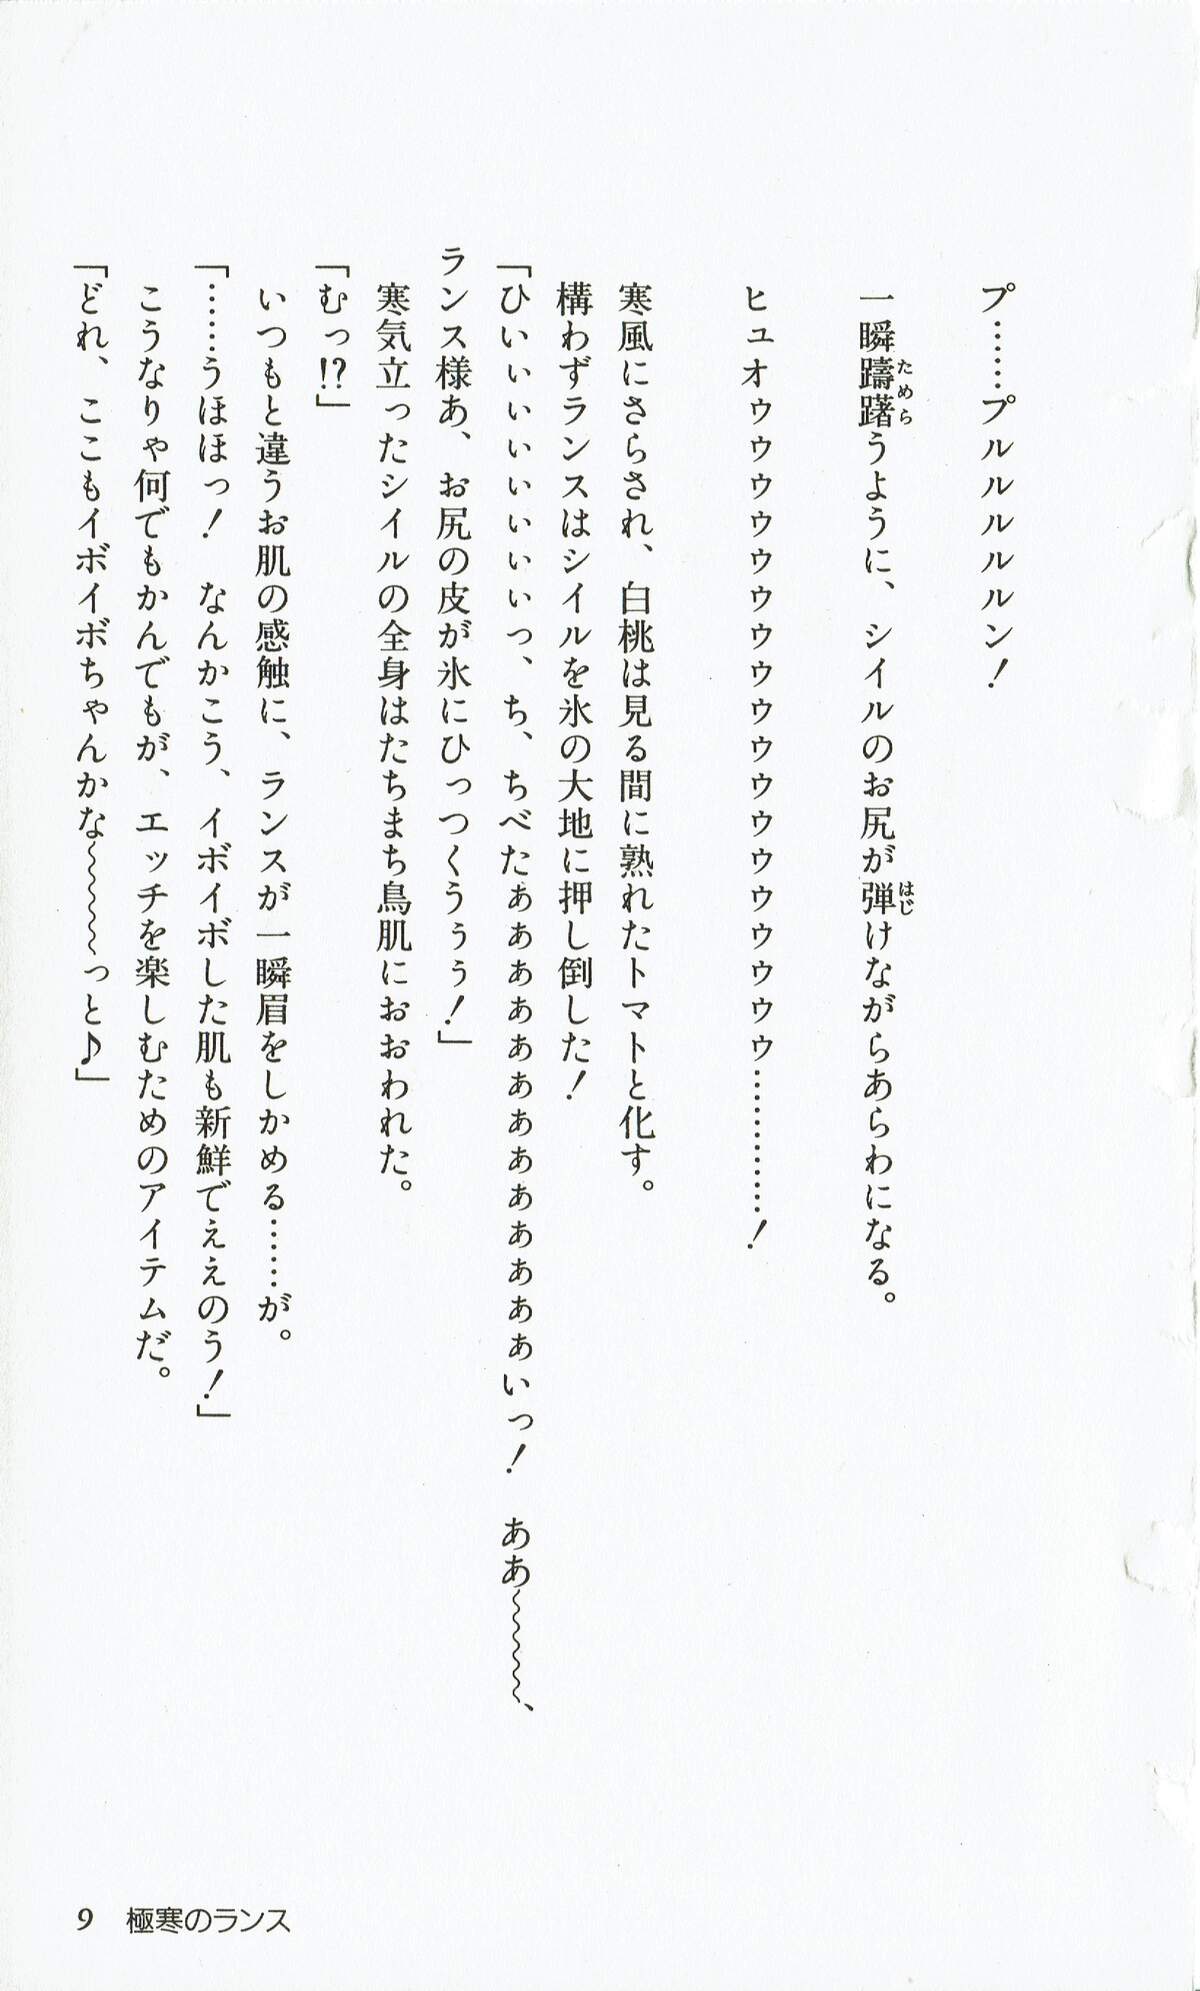 プ……プルルルルルン！
一瞬躊躇うように、シイルのお尻が弾けながらあらわになる。
ヒュオゥゥゥゥゥゥゥゥゥゥゥゥゥゥゥゥゥゥ…………！
寒風にさらされ、白桃は見る間に熟れたトマトと化す。
構わずランスはシイルを氷の大地に押し倒した！
「ひいぃぃぃぃぃぃぃっ、ち、ちべたぁぁぁぁぁぁぁぁぁぁぁぁぁいっ！　ああ～～～～～、
ランス様あ、お尻の皮が氷にひっつくうぅぅ！」
寒気立ったシイルの全身はたちまち鳥肌におおわれた。
「むっ!?」
いつもと違うお肌の感触に、ランスが一瞬眉をしかめる……が。
「……うほほっ！　なんかこう、イボイボした肌も新鮮でぇぇのう！」
こうなりゃ何でもかんでもが、エッチを楽しむためのアイテムだ。
「どれ、ここもイボイボちゃんかな～～～～～っと♪」
9　極寒のランス